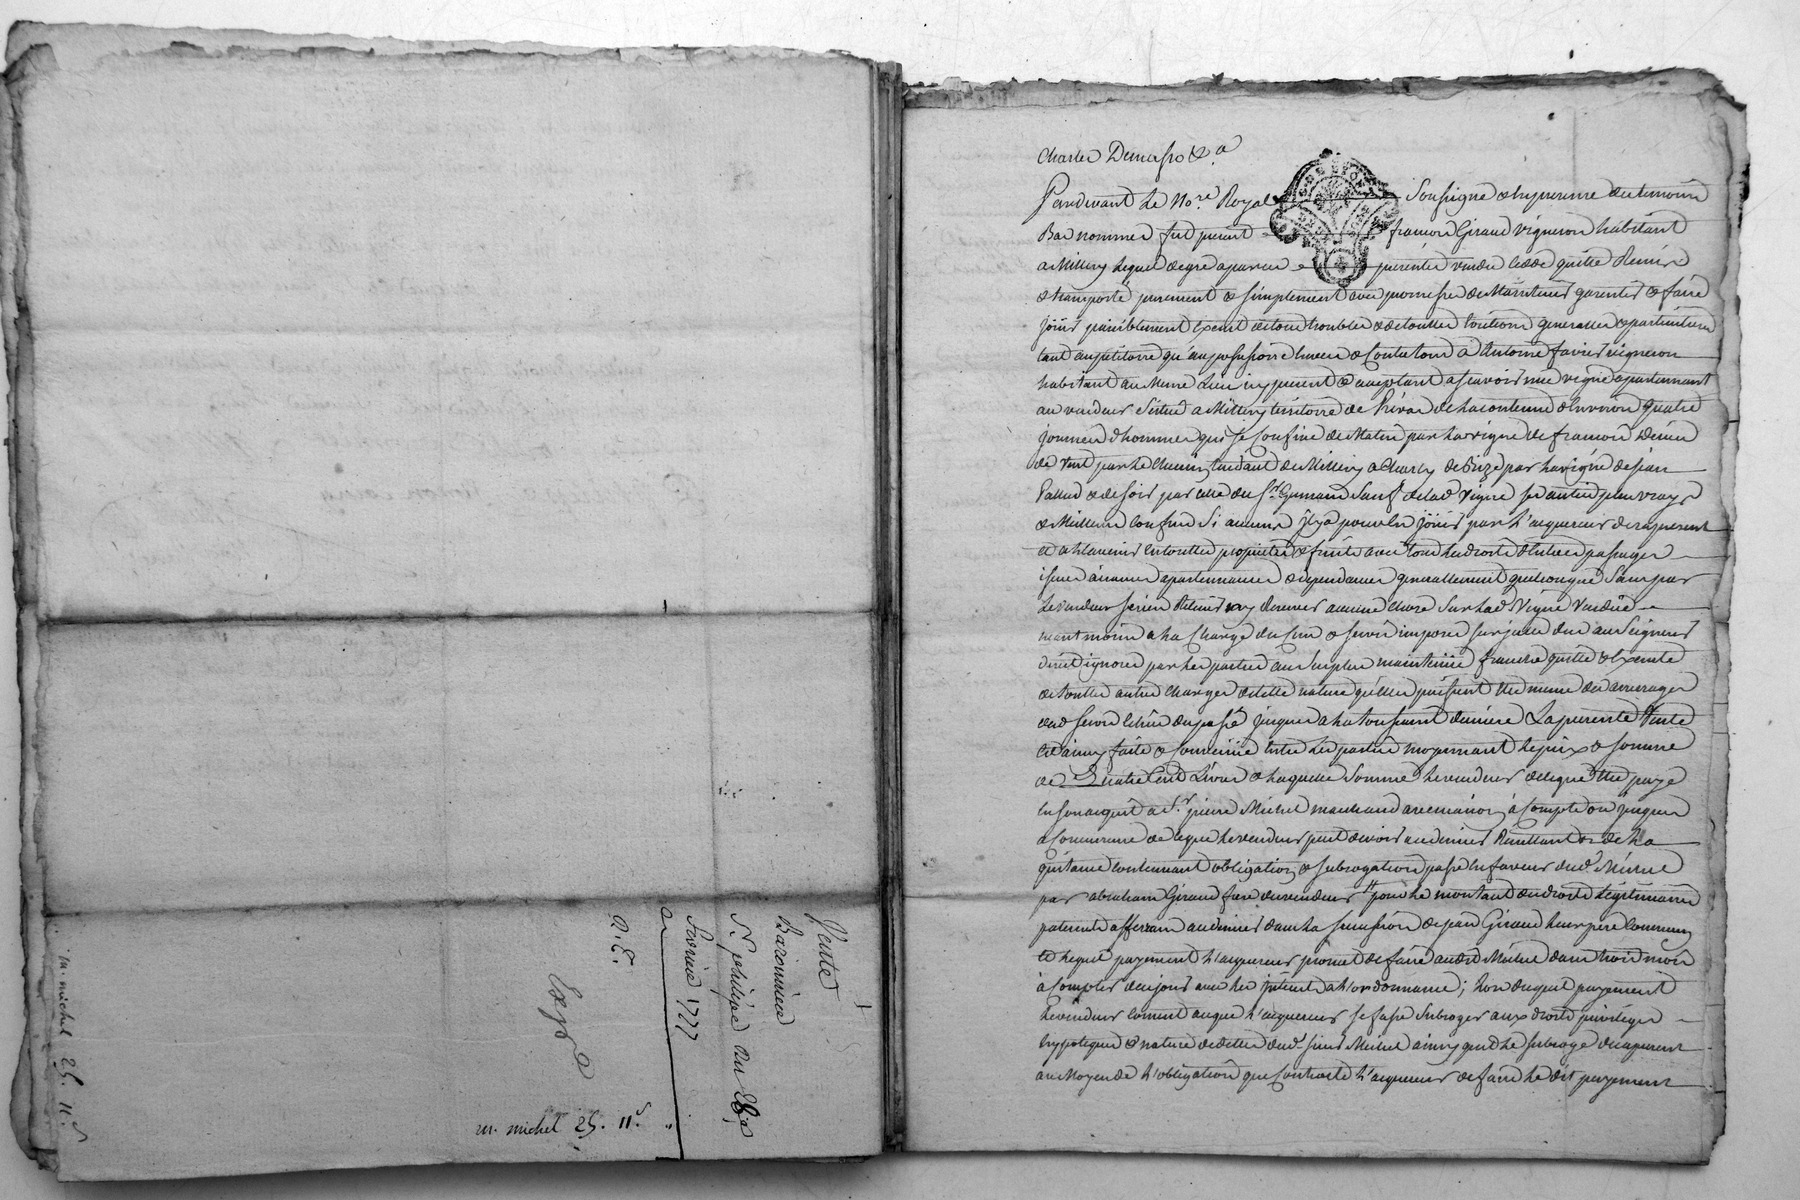 Vente
Baronnière
Sr. philipe du 28e
fevrier 1777
R. E.
Expé
m. michel 25. 11s
m. michel 25. 11s
Charles Demasso &a
Pardevant le Nore. Royal soussigné & en presence des temoins
Bas nommes fut present françois Giraud vigneron habitant
a Millery lequel de gré a par ces presentes vendu cedde quitte Remis
& transporté purement & simplement avec promesse de Maintenir garentir & faire
joüir paisiblement exemt de tous troubles & de touttes evictions generalles & particulieres
tant au petitoire qu'au possessoire envers & Contre tous a Antoine favier vigneron
habitant au meme Lieu icy present & acceptant a scavoir une vigne apartenant
au vendeur Située a Millery territoire de de la contenue d'Environ quatre
journées d'hommes qui se Confine de Matin par la vigne de françois
de vent par le Chemin tendant de Millery a Charly de bize par la vigne de jean
& de soir par celle du Sr. Germain Sauf de lad. vigne ses autres plus vrays
& Meilleurs confins Si aucuns il y a pour en joüir par l'acquereur des a present
et a l'avenir en toutte proprieté & fruits avec tous les droits d'Entrées passages
issues aisances apartenances & dependances generallement quelconques Sans par
Le vendeur se rien Retenir ny reserver aucune chose Sur lad. vigne vendüe
neantmoins a la Charge du Cens & servis imposés sur icelle due au Seigneur
direct ignoré par les parties au surplus maintenüe franche quitte & Exemte
de touttes autres Charges de telle nature qu'elles puissent etre meme des arrerages
dud. servis echus du passé jusques a la toussaint derniere La presente Vente
est ainsy faite & Convenüe entre les parties moyennant le prix & somme
de Quatre Cent Livres & laquelle Somme le vendeur delegue etre payé
en son acquit a Sr. pierre Michel marchand a compte ou jusques
a Concurrence de ce que le vendeur peut devoir au dernier Resultant de la
quittance contenant obligation & subrogation passé en faveur dud. Michel
par abraham Giraud frere du vendeur pour le montant des droits Legitimaires
paternels afferant au dernier dans la succession de jean Giraud leur pere Commun
et lequel payement l'acquereur promet de faire audit Michel dans trois mois
à Compter de ce jour avec les interets a l'ordonnance; Lors duquel payement
le vendeur consent a ce que l'acquereur se fasse Subroger aux droits privileges
hypoteques & nature de dettes dud. sieur Michel ainsy qu'il le subroge des a present
au Moyen de l'obligation que Contracte l'acquereur de faire le dit payement